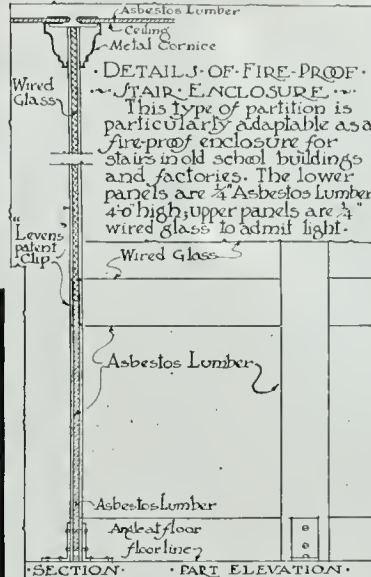 Asbestos Lumber
Ceiling
Metal Cornice
Wired
Glass
·DETAILS·OF·FIRE·PROOF·
·STAIR·ENCLOSURE·
This type of partition is
particularly adaptable as a
fire-proof enclosure for
stairs in old school buildings
and factories. The lower
panels are ¼" Asbestos Lumber
4'-0" high; upper panels are ¼"
wired glass to admit light·
"Levens
patent
Clip"
Wired Glass
Asbestos Lumber
Asbestos Lumber
Angle at floor
floor line
·SECTION·
·PART ELEVATION·